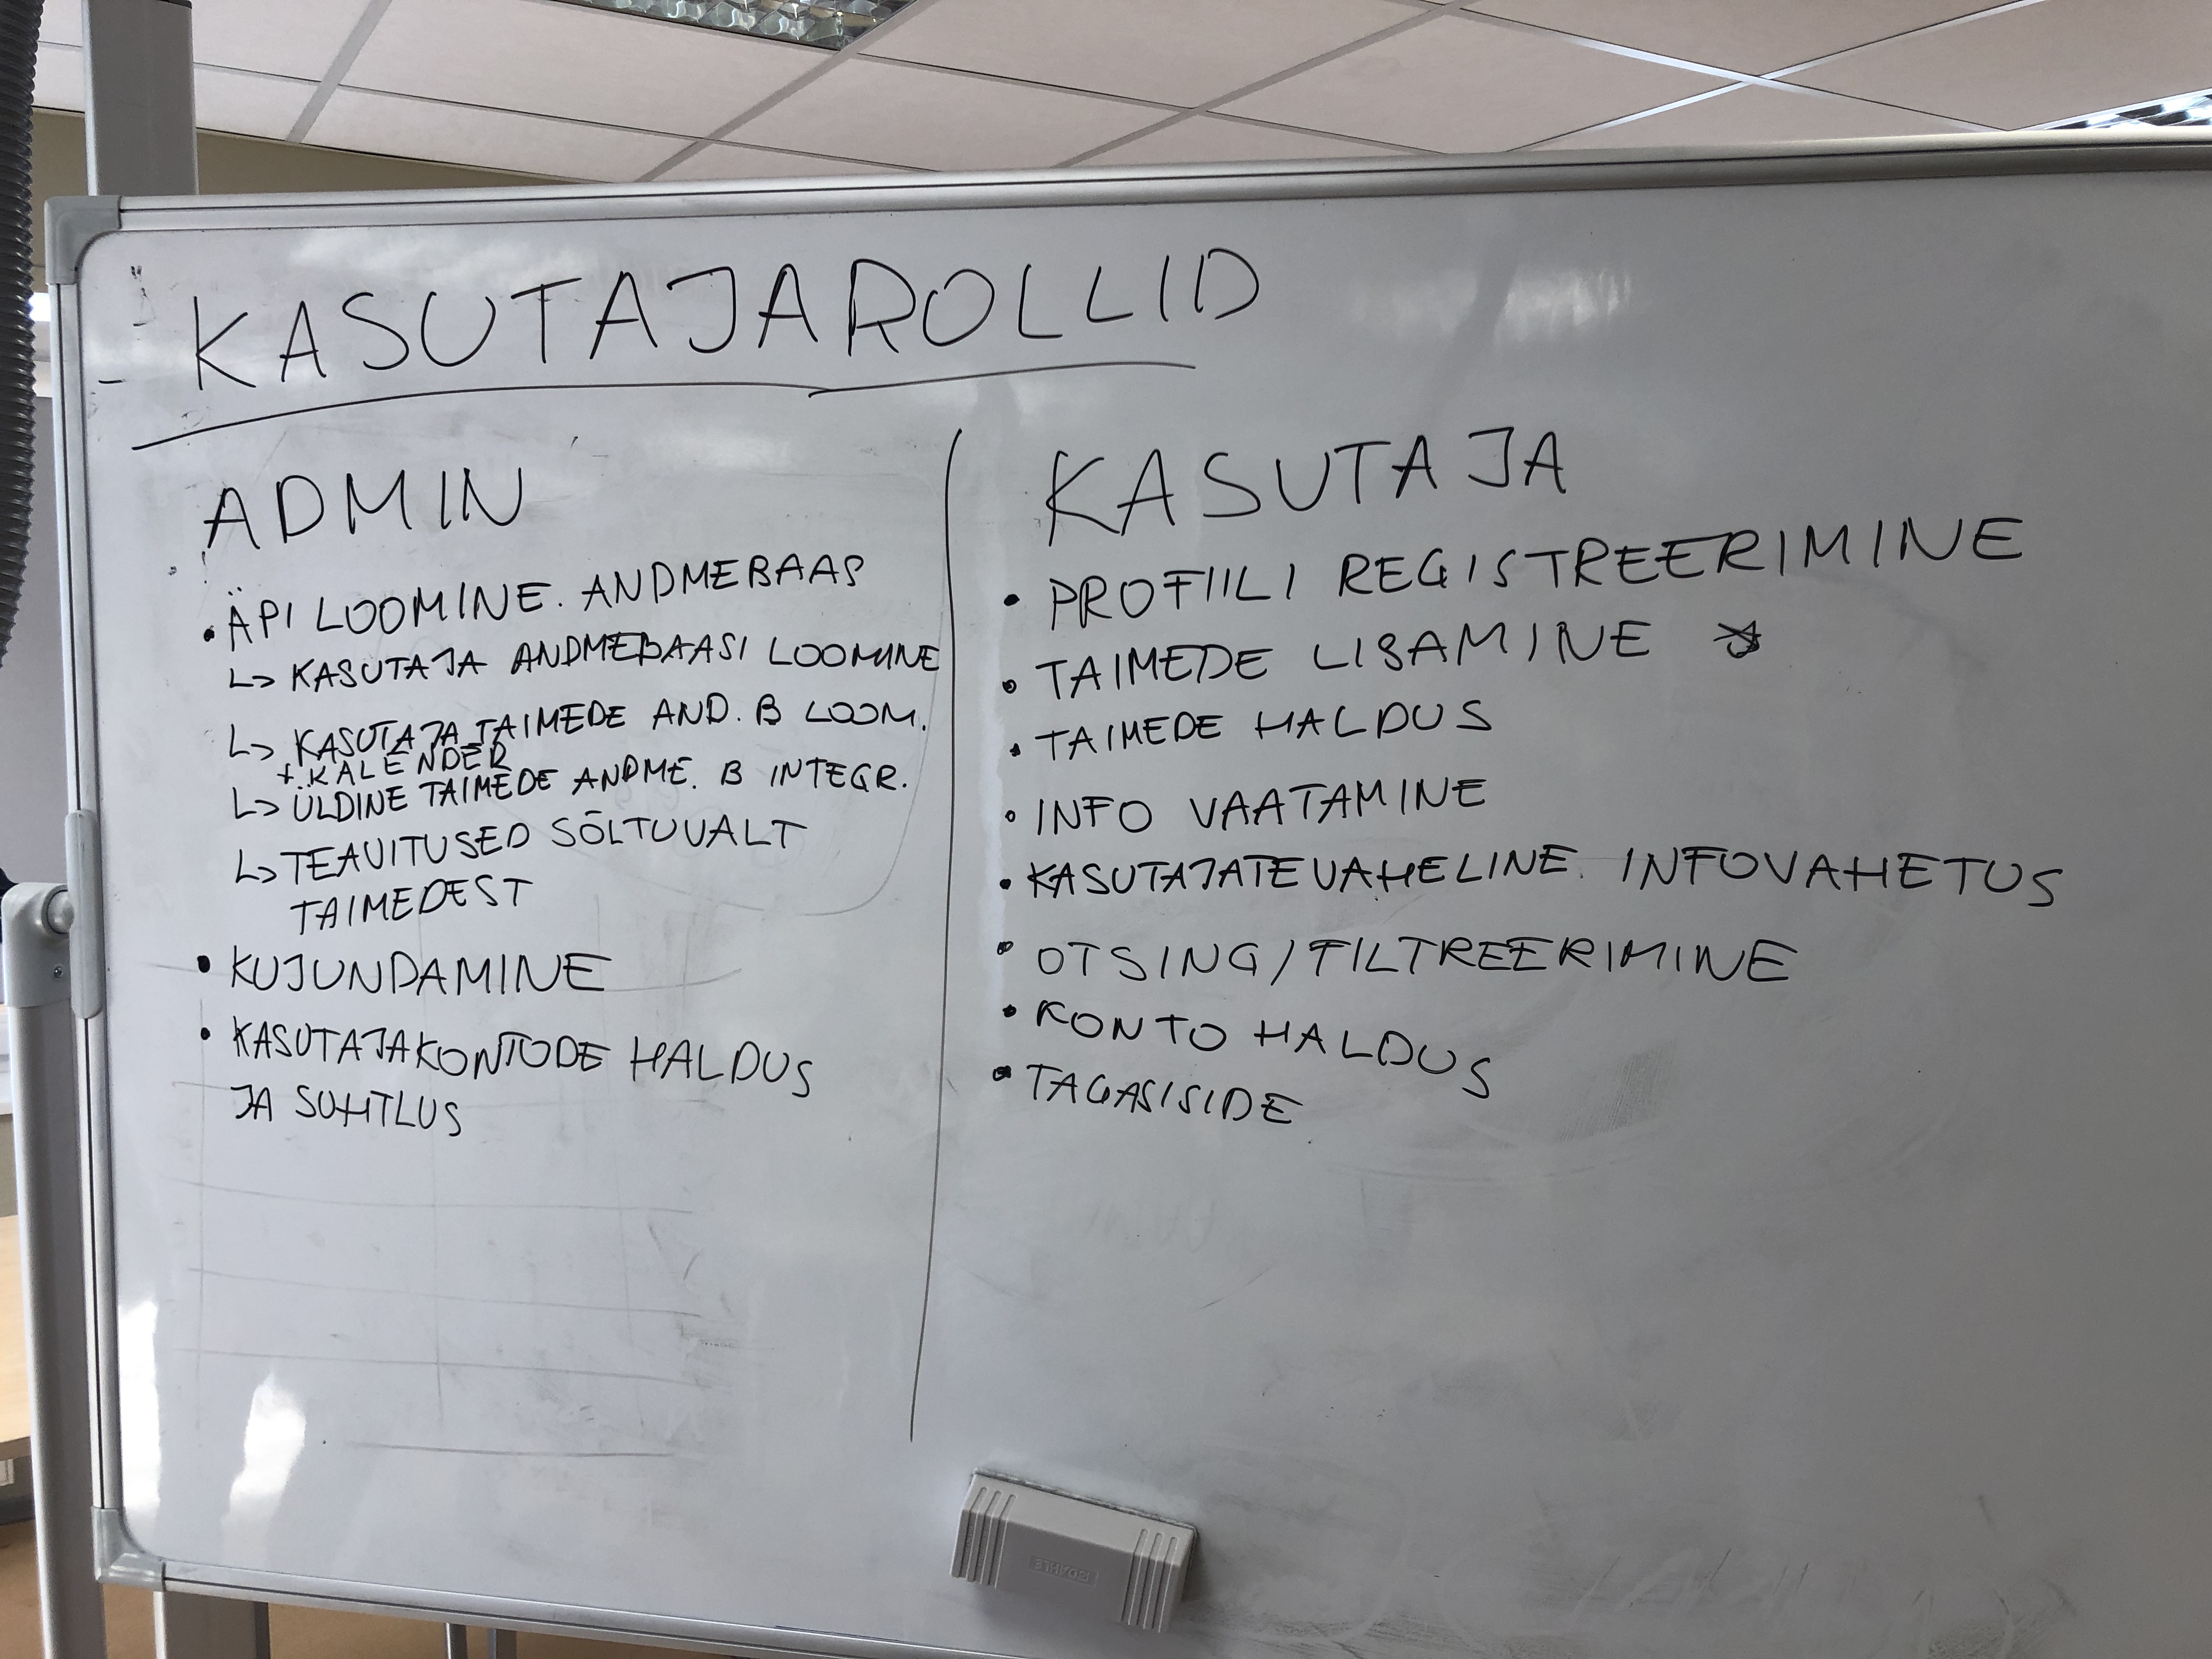 KASUTAJAROLLID
ADMIN
• ÄPI LOOMINE. ANDMEBAAS
↳ KASUTAJA ANDMEBAASI LOOMINE
↳ KASUTAJA TAIMEDE AND. B LOOM.
+ KALENDER
↳ ÜLDINE TAIMEDE ANDME. B INTEGR.
↳ TEAVITUSED SÕLTUVALT
TAIMEDEST
• KUJUNDAMINE
• KASUTAJAKONTODE HALDUS
JA SUHTLUS
KASUTAJA
• PROFIILI REGISTREERIMINE
• TAIMEDE LISAMINE ☆
• TAIMEDE HALDUS
• INFO VAATAMINE
• KASUTAJATEVAHELINE INFOVAHETUS
• OTSING/FILTREERIMINE
• KONTO HALDUS
• TAGASISIDE
DAHLE